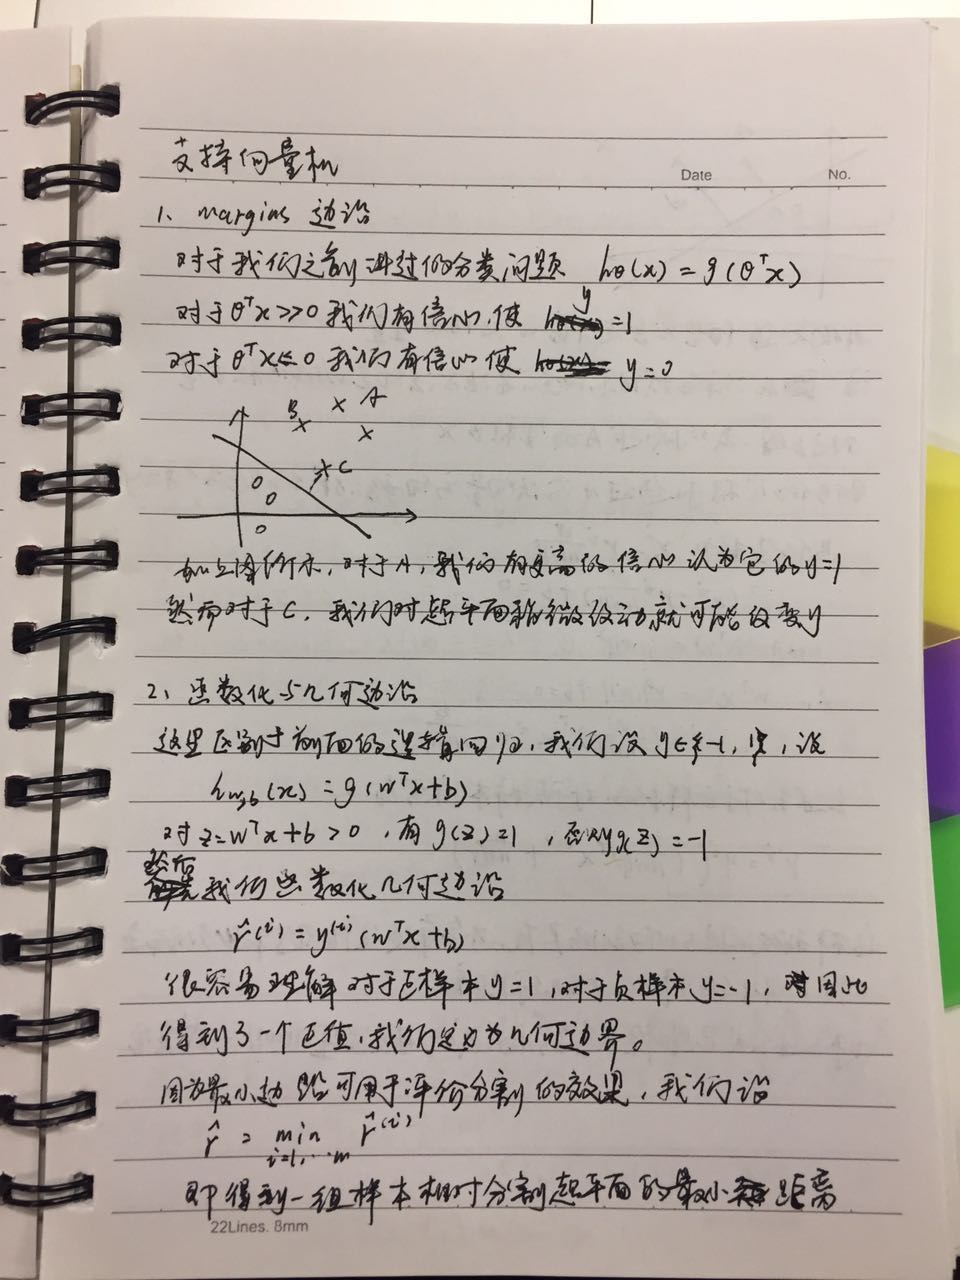 支持向量机
Date No.
1、margins 边沿
对于我们之前讲过的分类问题 hθ(x) = g(θᵀx)
对于θᵀx>>0 我们有信心,使 y=1
对于θᵀx≤0 我们有信心使 y=0
B × × A
× ×
× C
0
0
0
如上图所示,对于A,我们有更高的信心认为它的y=1
然而对于C,我们对超平面稍微改动就可能改变y
2、函数化与几何边沿
这里区别于前面的逻辑回归,我们设y∈{-1,1},设
hw,b(x) = g(wᵀx+b)
对z=wᵀx+b>0,有g(z)=1,否则g(z)=-1
然后我们函数化几何边沿
r̂⁽ⁱ⁾ = y⁽ⁱ⁾(wᵀx+b)
很容易理解对于正样本y=1,对于负样本y=-1,因此
得到了一个正值,我们定义为几何边界。
因为最小边沿可用于评价分割的效果,我们设
r̂ = min r̂⁽ⁱ⁾
i=1,...m
即得到一组样本相对分割超平面的最小距离
22Lines. 8mm